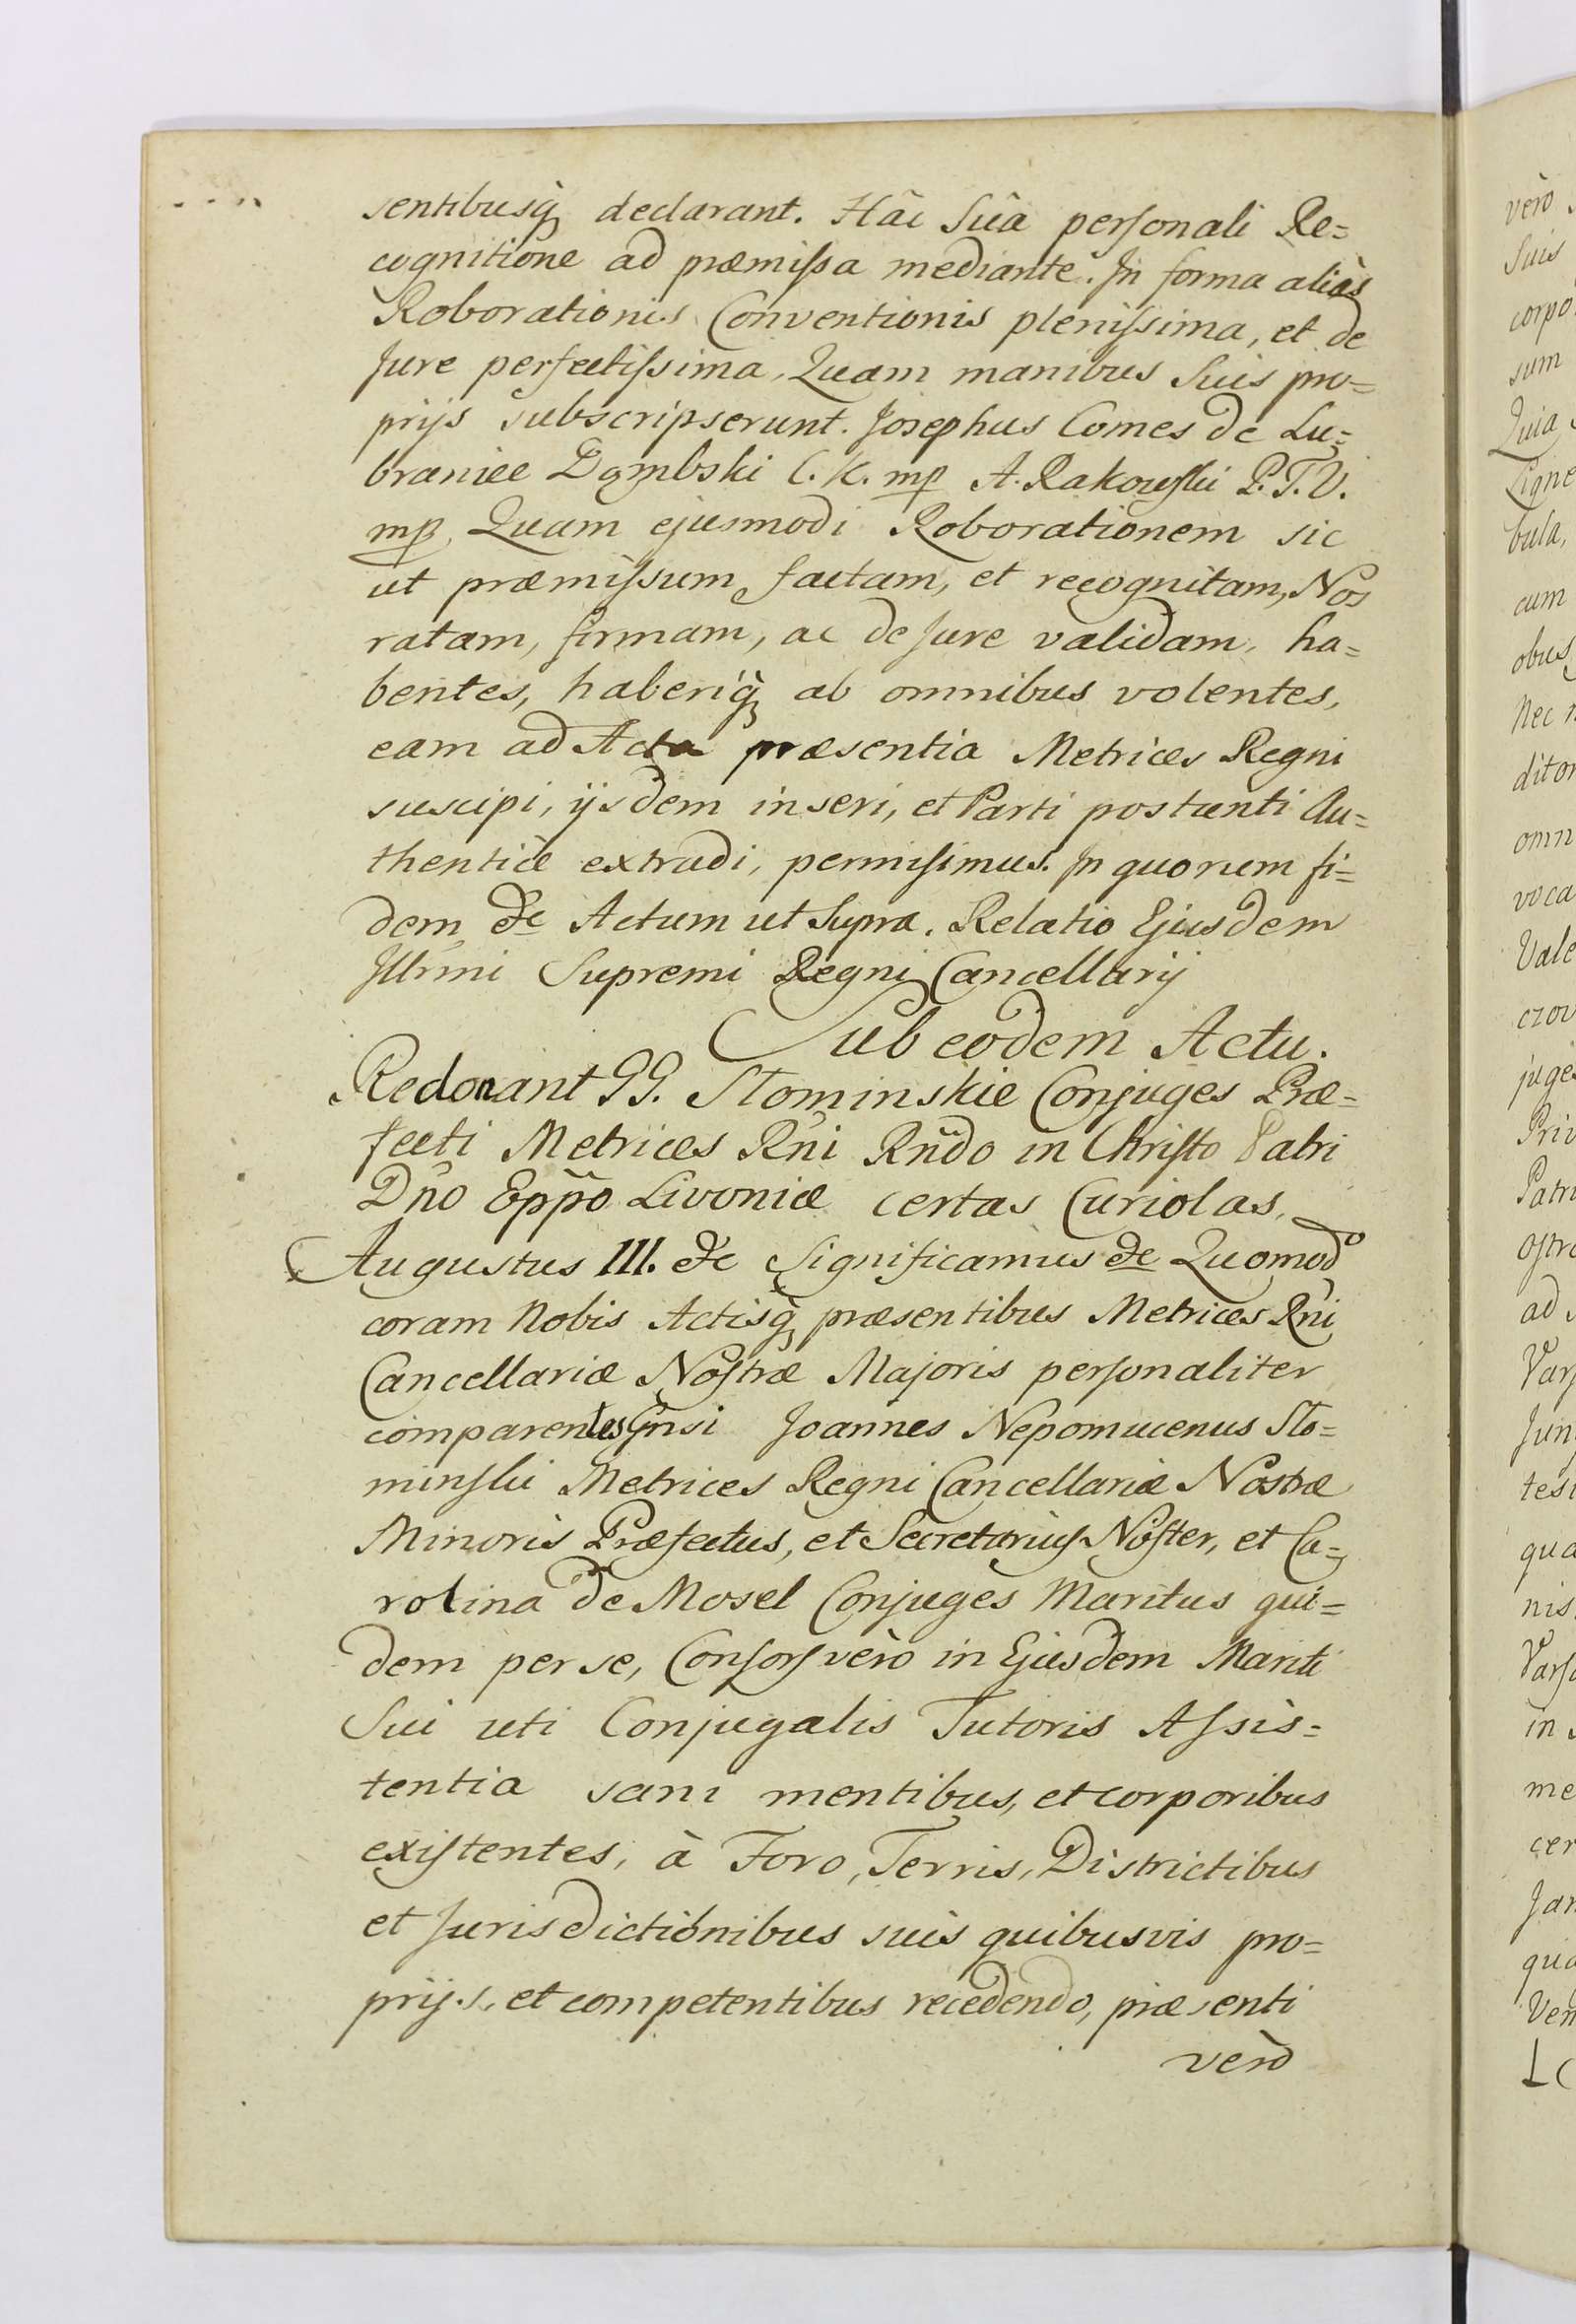 sentibusq̀ declarant. Hâc Suâ personali Re=
cognitione ad præmissa mediante. In forma aliàs
Roborationis Conventionis plenissima, et de
Jure perfectissima, Quam manibus Suis pro=
prijs subscripserunt. Josephus Comes de Lu=
braniec Dąmbski C. K. mp A. Rakowski P. T. V.
mp. Quam ejusmodi Roborationem sic
ut præmissum factam, et recognitam, Nos
ratam, firmam, ac de Jure validam, ha=
bentes, haberiq̀ ab omnibus volentes,
eam ad Acta præsentia Metrices Regni
suscipi, ijsdem inseri, et Parti postunti Au=
thenticè extradi, permisimus. In quorum fi=
dem &c Actum ut Supra. Relatio Ejusdem
Illrmi Supremi Regni Cancellarij
Sub eodem Actu.
Redonant GG. Słominskie Conjuges Præ=
fecti Metrices Rñi Rñdo in Christo Patri
Dño Eppõ Livoniæ certas Curiolas.
Augustus III. &c Significamus &c Quomodo
coram Nobis Actisq̀ præsentibus Metrices Rñi
Cancellariæ Nostræ Majoris personaliter
comparentes Gnsi Joannes Nepomucenus Sło=
minski Metrices Regni Cancellariæ Nostræ
Minoris Præfectus, et Secretarius Noster, et Ca=
rolina de Mosel Conjuges Maritus qui=
dem per se, Consors verò in Ejusdem Mariti
Sui uti Conjugalis Tutoris Assis=
tentia sani mentibus, et corporibus
existentes, à Foro, Terris, Districtibus
et Jurisdictionibus suis quibusvis pro=
prijs, et competentibus recedendo, præsenti
verò
verò
Suis
corpo
sum
Quia
Ligne
bula,
cum
obus
Nec
ditor
omn
voca
Vale
czov
juges
Priv
Patri
ostro
ad
Vars
Jun
tes
qua
nis
Vars
in
me
cer
Jan
qua
Ven